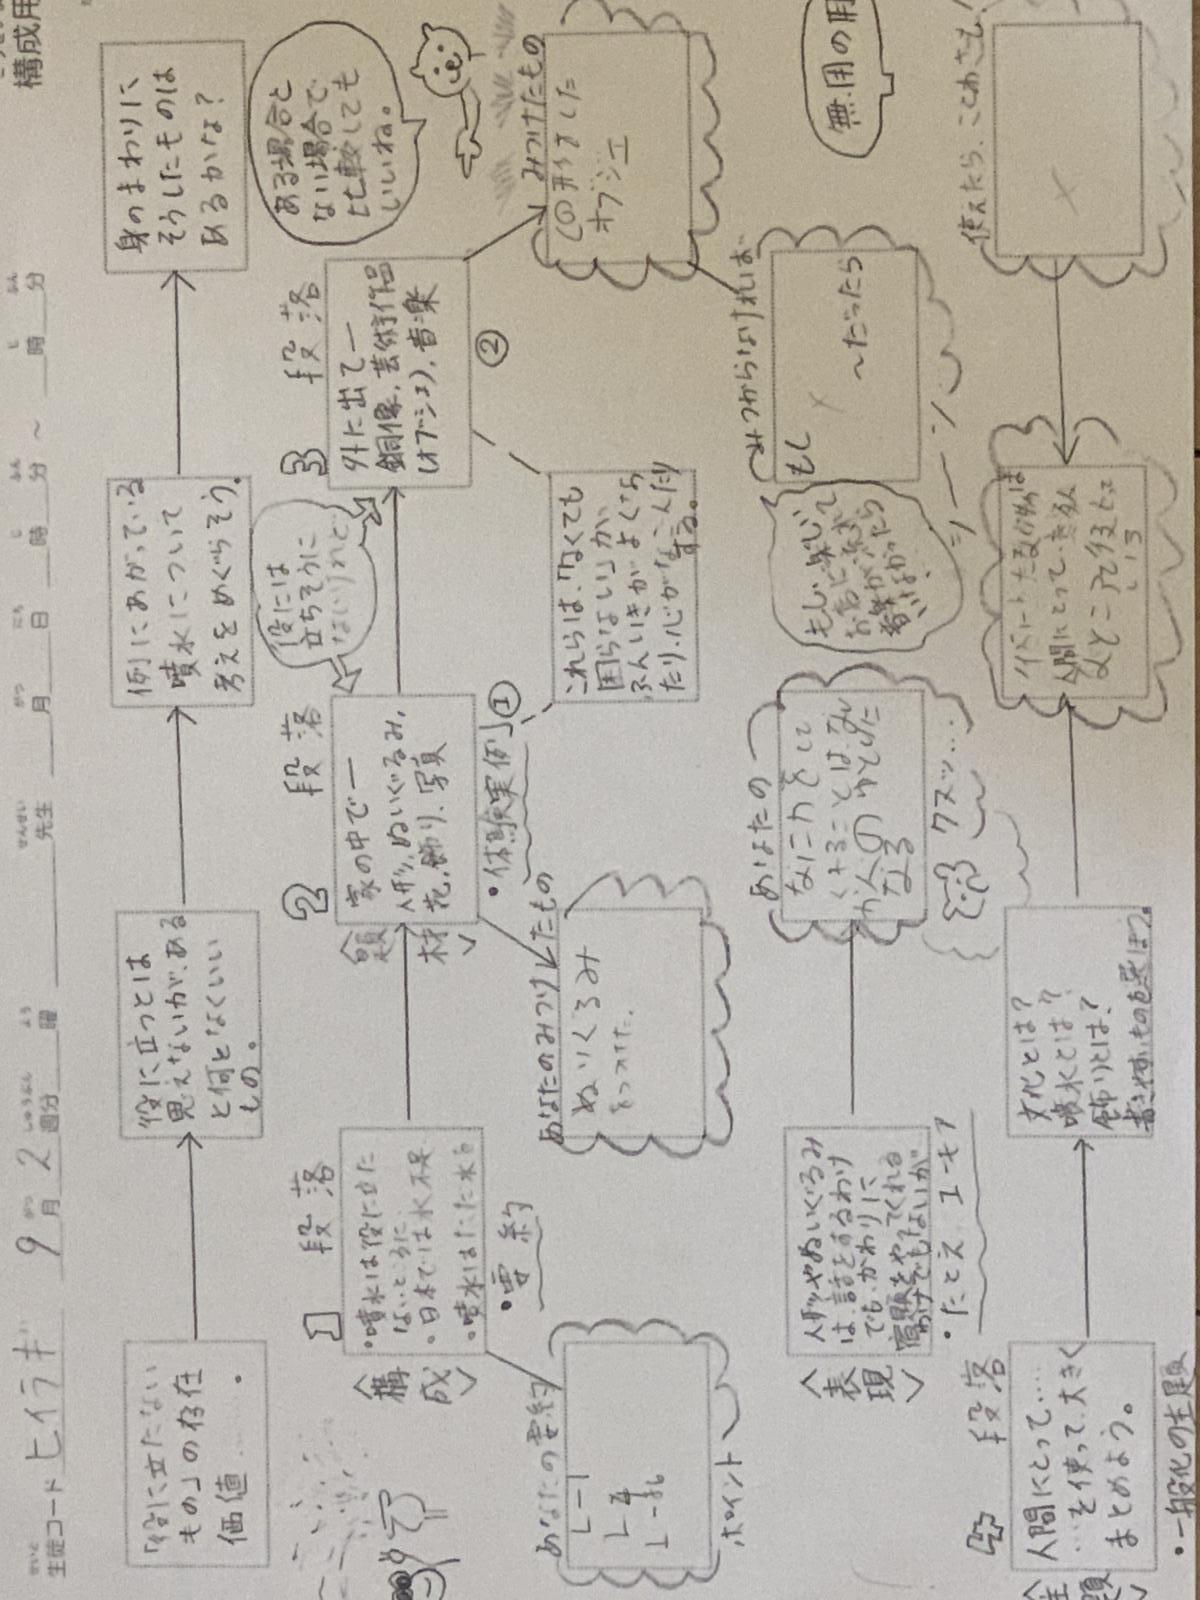 構成用
生徒コード ヒイラギ 9月2週分 曜 先生 月 日 時 分 ～ 時 分
「役に立たない
もの」の存在
価値……。
役に立つとは
思えないが、ある
と何となくいい
もの。
例にあがっている
噴水について
考えをめぐらそう。
身のまわりに
そうしたものは
あるかな？
ある場合と
ない場合で
比較しても
いいね。
〈構成〉
1 段落
・噴水は役に立た
ないところに
・日本では水不足
・噴水はただ水を
・要約
あなたの要約
ポイント
〈題材〉
2 段落
家の中で―
人形、ぬいぐるみ、
花、飾り、写真
・体験実例 ①
役には
立ちそうに
ないけれど
あなたのみつけたもの
ぬいぐるみ
をつけた。
3 段落
外に出て―
銅像、芸術作品
(オブジェ)、音楽
②
みつけたもの
の形をした
オブジェ
これらは、なくても
困らないしか、
ふんいきがよくなっ
たり、心がなごんだり
する。
〈表現〉
人形やぬいぐるみ
は、話をするわけ
でも、かわりに
宿題をやってくれる
わけでもないが
・たとえ ユーモア
あなたの
なにかをして
くれることは
なる
クスッ…
もし、楽しい
お店に流れて
音楽がなかったら
シーーン
みつからなければ
もし
～だったら
無用の用
4 段落
〈主題〉
人間にとって……
…を使って、大きく
まとめよう。
・一般化の主題
文化とは？
噴水とは？
飾りとは？
書きやすいものを選ぼう。
人間にとって、
使えたら、ことわざも！